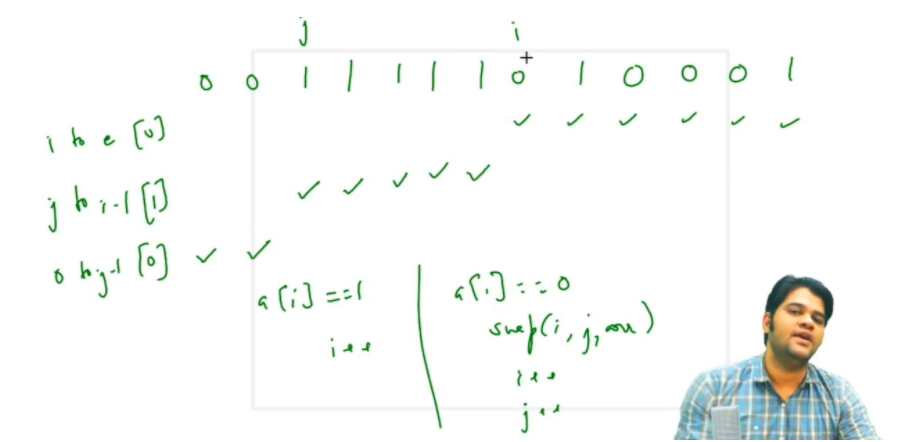 j i
0 0 1 1 1 1 1 0 1 0 0 0 1
i to e [υ]
j to i-1 [1]
0 to j-1 [0]
a[i] ==1
i++
a[i] == 0
swap(i, j, arr)
i++
j++